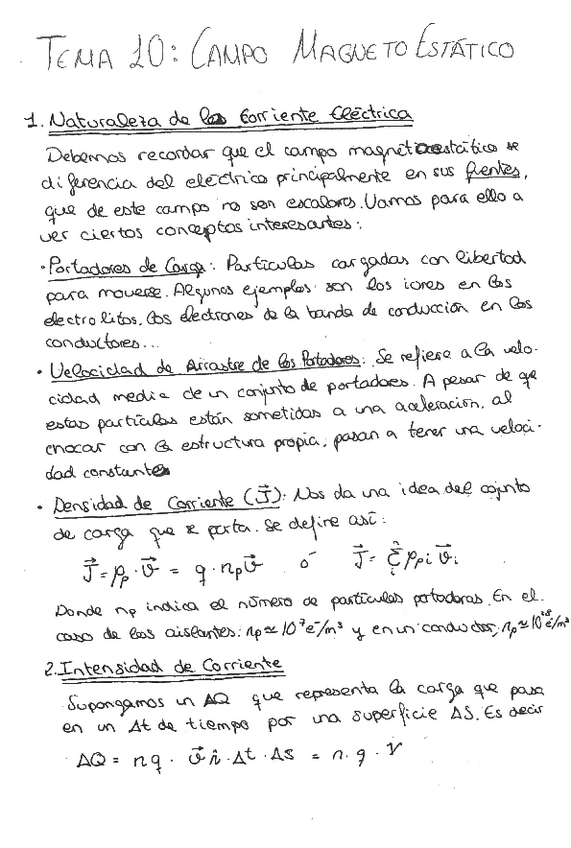 TEMA 10: CAMPO MAGNETOESTÁTICO
1. Naturaleza de la Corriente Eléctrica
Debemos recordar que el campo magnétoestático se
diferencia del eléctrico principalmente en sus fuentes,
que de este campo no son escalares. Vamos para ello a
ver ciertos conceptos interesantes:
· Portadores de Carga: Partículas cargadas con libertad
para moverse. Algunos ejemplos son los iones en los
electrolitos, los electrones de la banda de conducción en los
conductores...
· Velocidad de Arrastre de los Portadores: Se refiere a la velo-
cidad media de un conjunto de portadores. A pesar de que
estas partículas están sometidas a una aceleración, al
chocar con la estructura propia, pasan a tener una veloci-
dad constante
· Densidad de Corriente (J⃗): Nos da una idea del cojunto
de carga que se porta. Se define así:
J⃗ = ρp · v⃗ = q · np v⃗ ó J⃗ = Σ ρpi v⃗i
Donde np indica el número de partículas portadoras. En el
caso de los aislantes: np ≃ 10⁷ e⁻/m³ y en un conductor, np ≃ 10²⁸ e⁻/m³
2. Intensidad de Corriente
Supongamos un ΔQ que representa la carga que pasa
en un Δt de tiempo por una superficie ΔS. Es decir
ΔQ = nq · v⃗ n̂ · Δt · ΔS = n · q · V